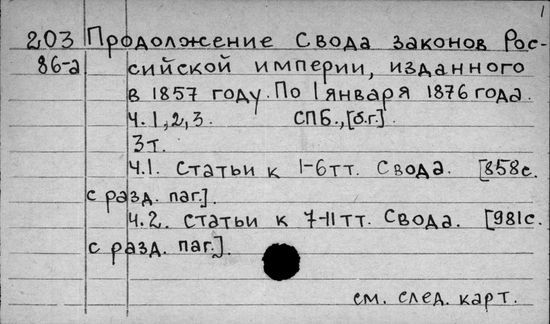 1
203 Продолжение Свода законов Рос-
86-а сийской империи, изданного
в 1857 году. По 1 января 1876 года.
Ч. 1, 2, 3. СПБ., [б.г.].
3т.
Ч.1. Статьи к 1-6 тт. Свода. [858 с.
с разд. паг.].
Ч.2. Статьи к 7-11 тт. Свода. [981 с.
с разд. паг.].
см. след. карт.